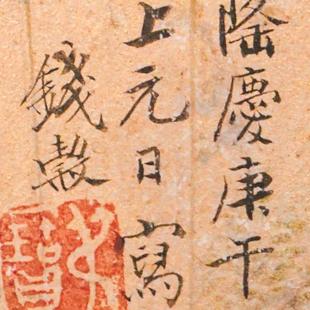 隆慶庚午
上元日寫
錢穀